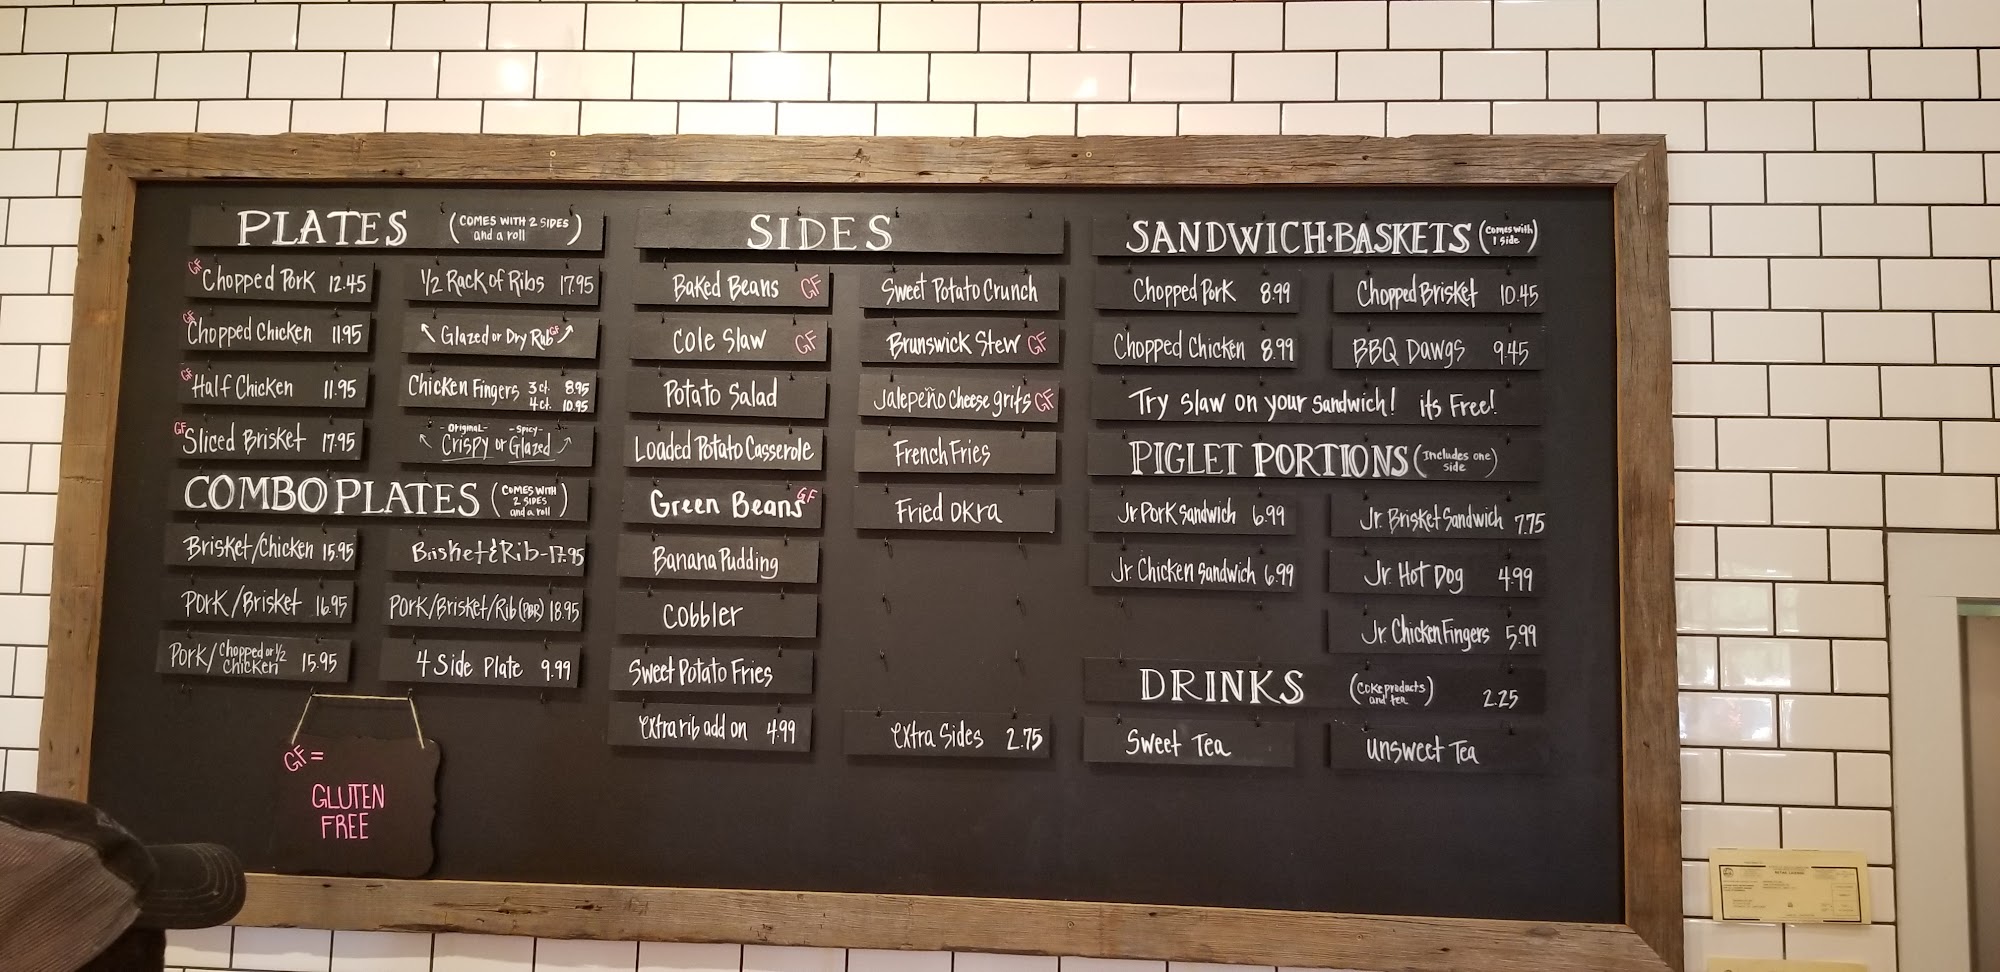 PLATES (COMES WITH 2 SIDES
and a roll)
GF Chopped Pork 12.45
GF Chopped Chicken 11.95
GF Half Chicken 11.95
GF Sliced Brisket 17.95
1/2 Rack of Ribs 17.95
↖ Glazed or Dry Rub GF ↗
Chicken Fingers 3 ct. 8.95
4 ct. 10.95
-Original- -Spicy-
↖ Crispy or Glazed ↗
COMBO PLATES (COMES WITH
2 SIDES
and a roll)
Brisket/Chicken 15.95
Pork/Brisket 16.95
Pork/Chopped or 1/2
Chicken 15.95
Brisket & Rib-17.95
Pork/Brisket/Rib (PBR) 18.95
4 Side Plate 9.99
GF =
GLUTEN
FREE
SIDES
Baked Beans GF
Cole Slaw GF
Potato Salad
Loaded Potato Casserole
Green Beans GF
Banana Pudding
Cobbler
Sweet Potato Fries
extra rib add on 4.99
Sweet Potato Crunch
Brunswick Stew GF
Jalepeño Cheese grits GF
French Fries
Fried Okra
extra Sides 2.75
SANDWICH·BASKETS (Comes with
1 side)
Chopped Pork 8.99
Chopped Chicken 8.99
Chopped Brisket 10.45
BBQ Dawgs 9.45
Try slaw on your sandwich! its Free!
PIGLET PORTIONS (Includes one
side)
Jr Pork Sandwich 6.99
Jr. Chicken Sandwich 6.99
Jr. Brisket Sandwich 7.75
Jr. Hot Dog 4.99
Jr. Chicken Fingers 5.99
DRINKS (Coke products
and tea) 2.25
Sweet Tea
Unsweet Tea